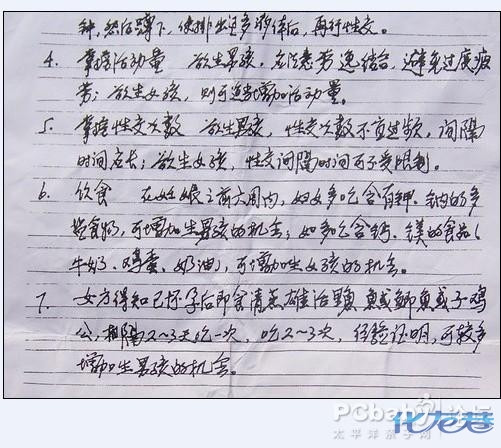 钟，然后蹲下，使排出过多液体后，再行性交。
4. 掌握活动量 欲生男孩，应注意劳逸结合，避免过度疲
劳；欲生女孩，则可适当增加活动量。
5. 掌握性交次数 欲生男孩，性交次数不宜过频，间隔
时间应长；欲生女孩，性交间隔时间可不受限制。
6. 饮食 在妊娠之前六周内，妇女多吃含有钾、钠的多
盐食物，可增加生男孩的机会；如多吃含钙、镁的食品（
牛奶、鸡蛋、奶油），可增加生女孩的机会。
7. 女方得知已怀孕后即食清蒸雄 鱼或鲫鱼或子鸡
公，相隔2～3天吃一次，吃2～3次，经验证明，可较多
增加生男孩的机会。
PCbaby论坛
太平洋亲子网
化龙巷